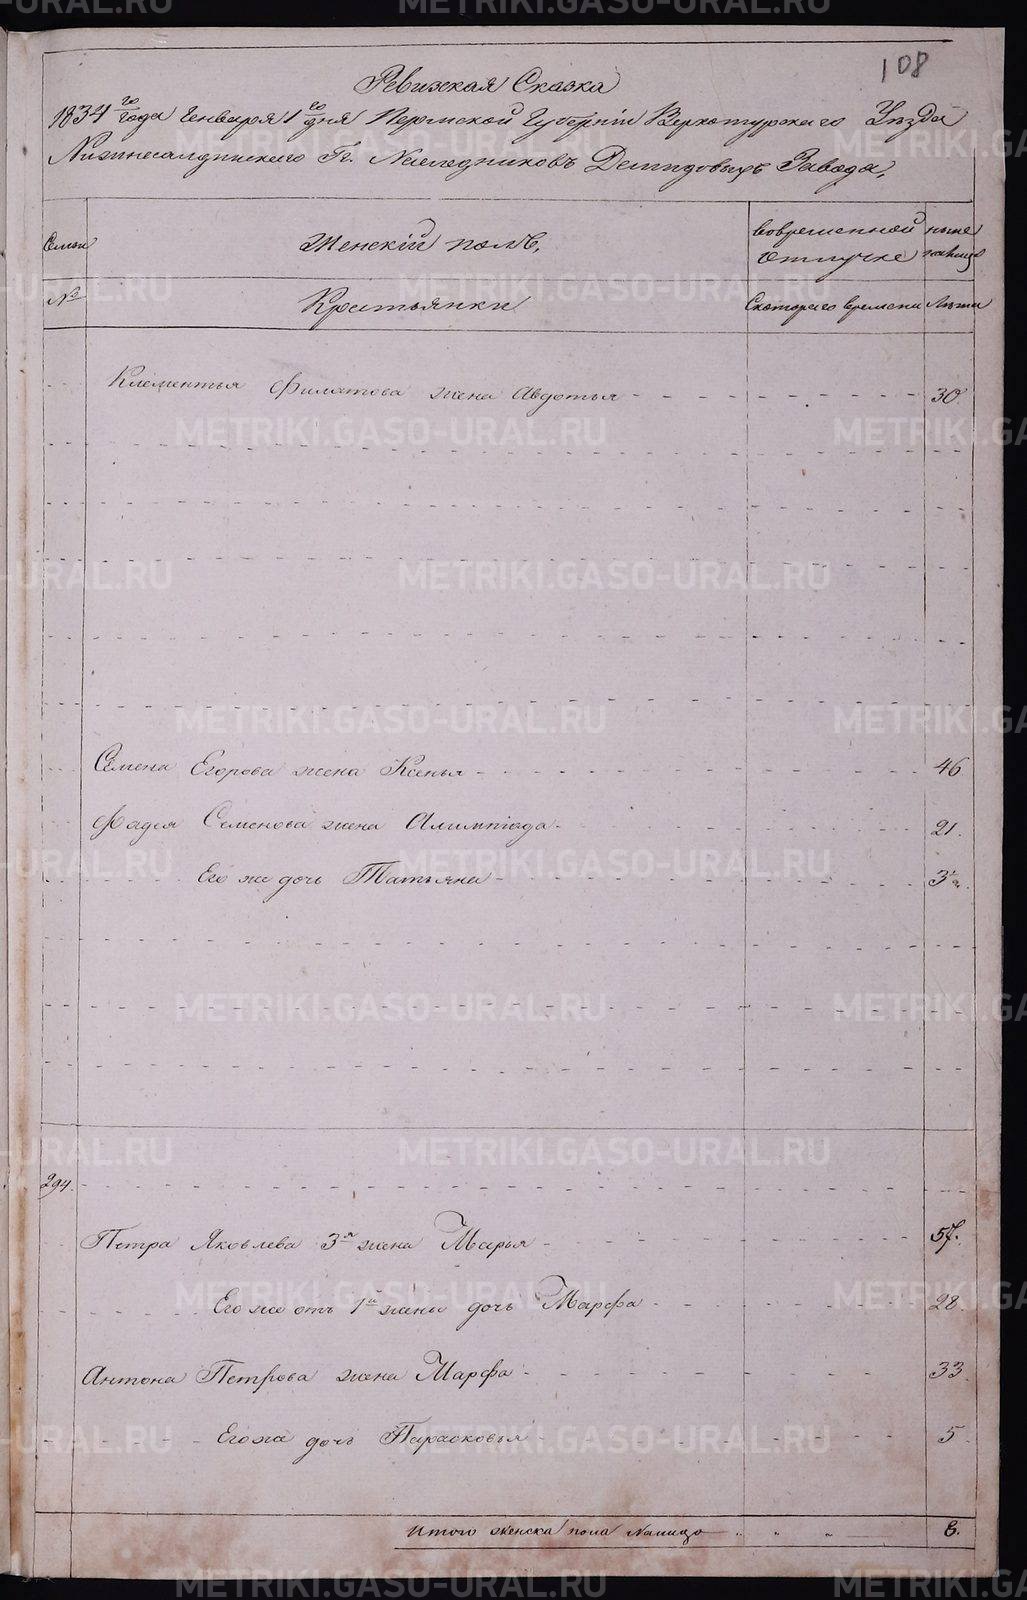 108
Ревизская Сказка
1834го года Генваря 1го дня Пермской Губерніи Верхотурскаго Уезда
Нижнесалдинскаго Гг. Наследниковъ Демидовыхъ Завода,
Семьи Женскій полъ, во временной ныне
отлучке налицо
№ Крестьянки Скотораго времени Лета
Клементья Филатова жена Авдотья 30.
Семена Егорова жена Ксенья 46
Фадея Семенова жена Алимпіода 21.
Его же дочь Татьяна
294.
Петра Яковлева 3я жена Марья 57.
Его же отъ 1й жены дочь Марфа 28
Антона Петрова жена Марфа 33
Его же дочь Парасковья 5
Итого женска пола Налицо 8.
METRIKI.GASO-URAL.RU